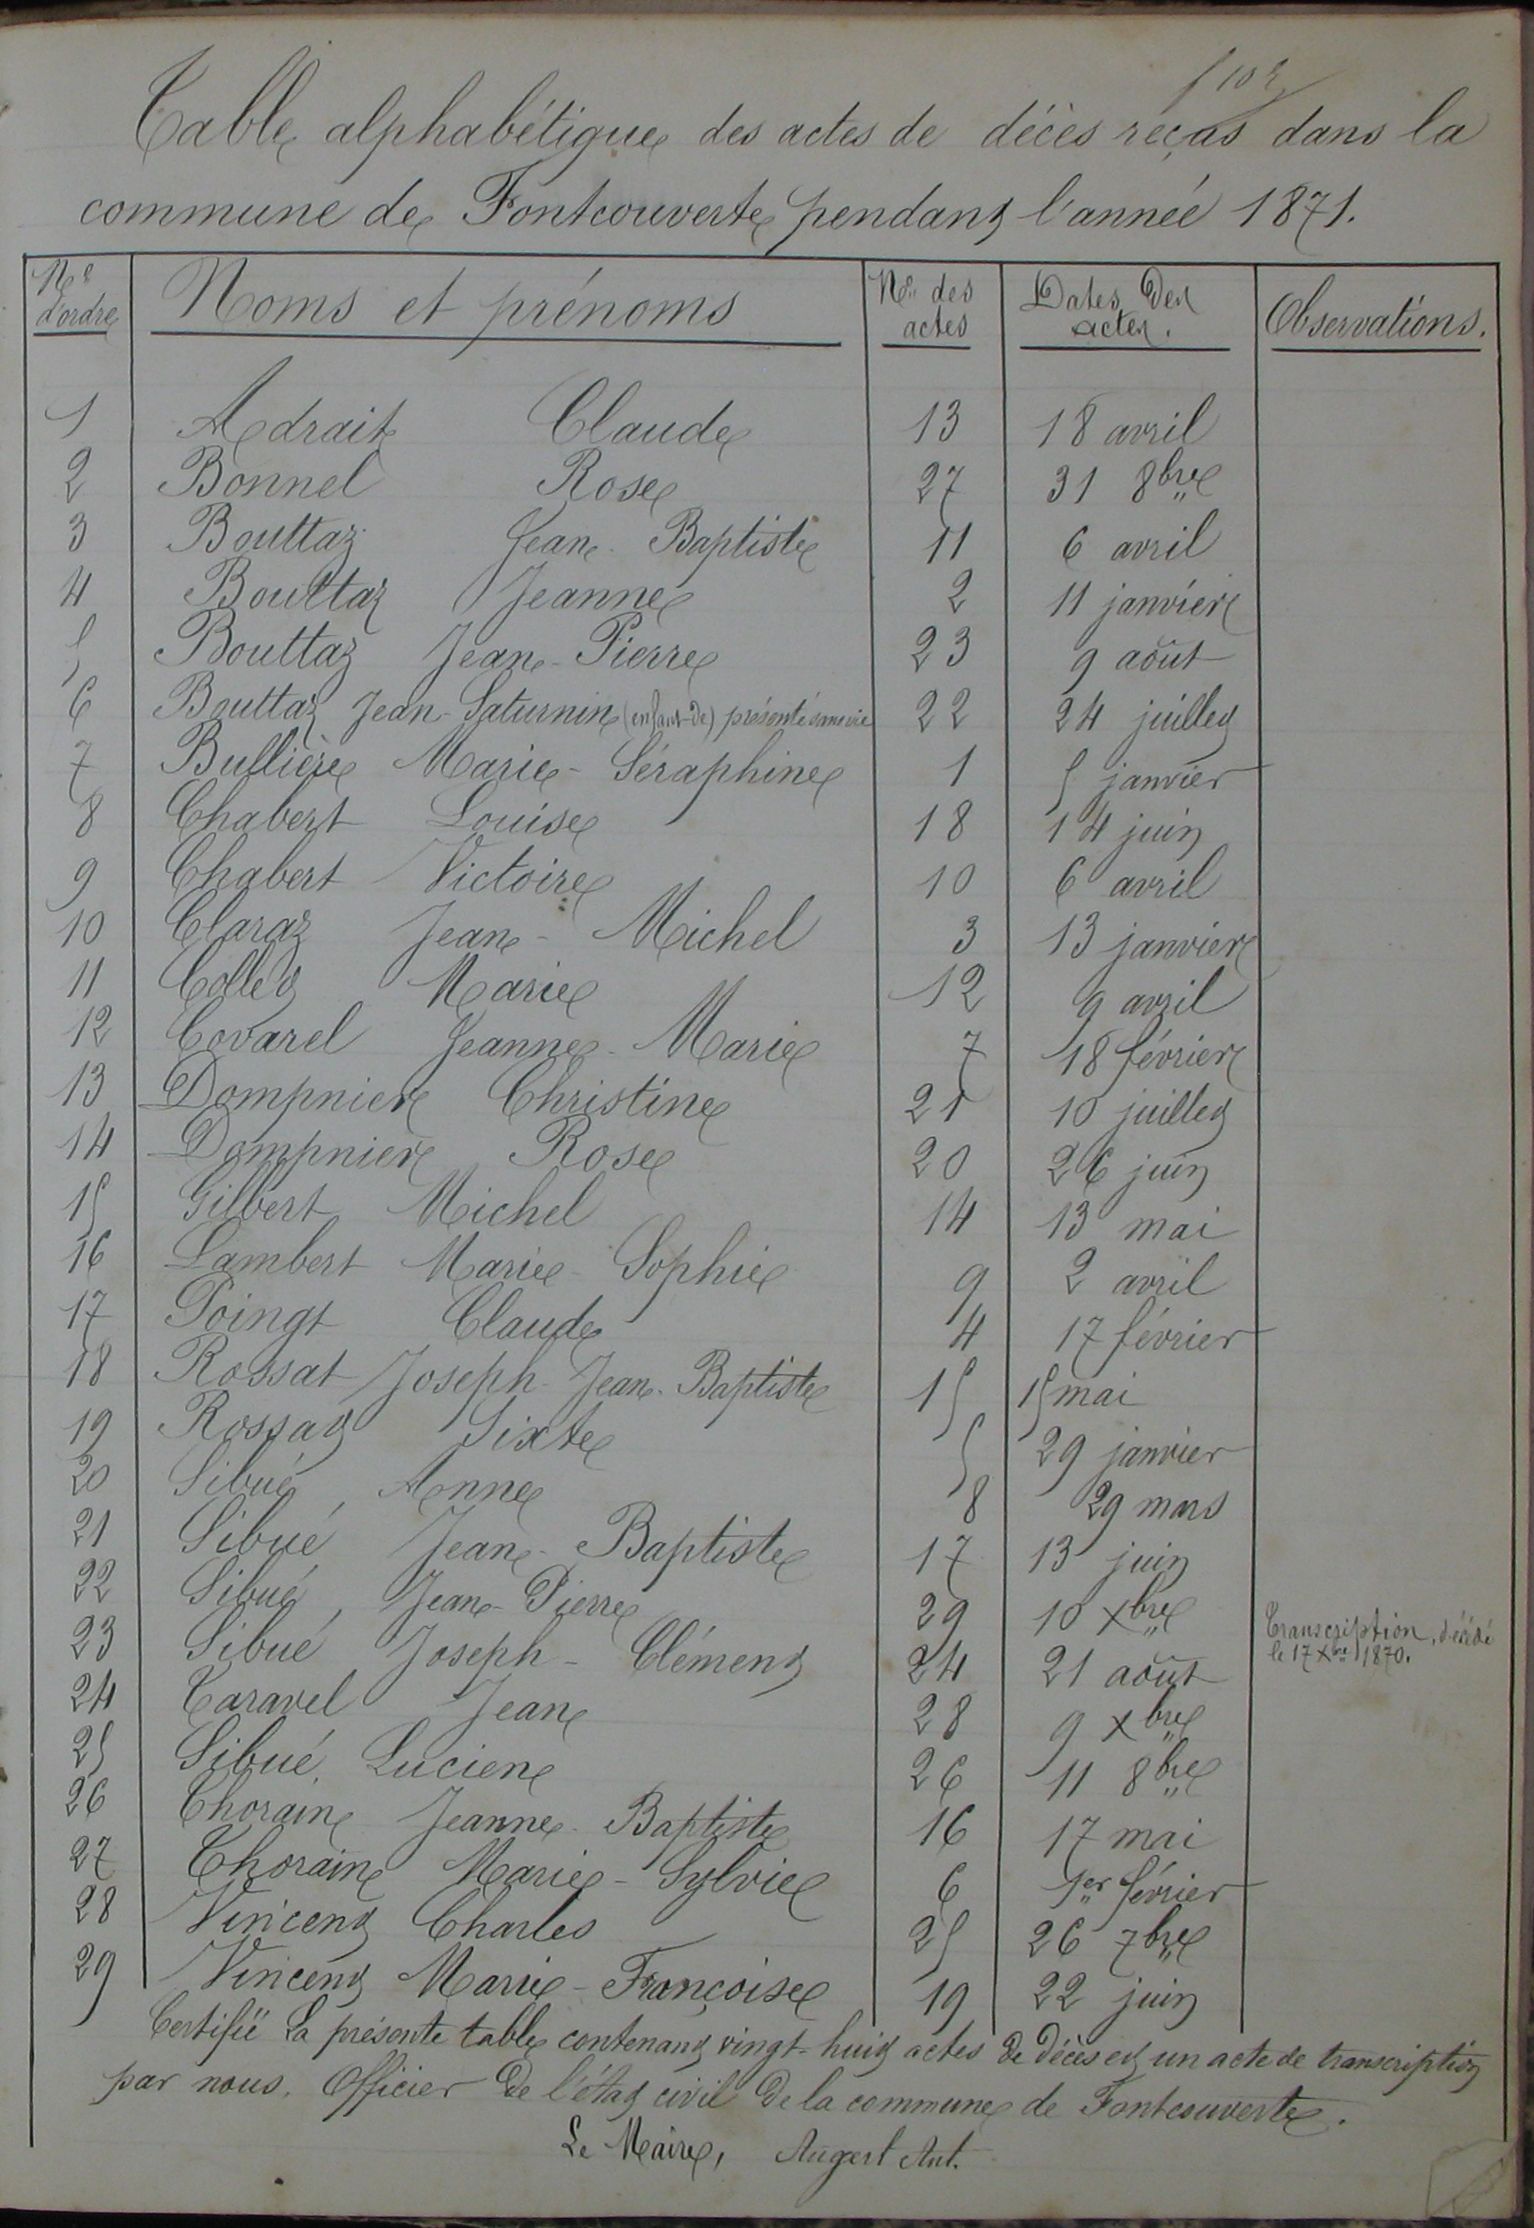 f 102
Table alphabétique des actes de décès reçus dans la
commune de Fontcouverte pendant l'année 1871.
Nos d'ordre Noms et prénoms Nos des actes Dates des actes. Observations.
1 Adrait Claude 13 18 avril
2 Bonnel Rose 27 31 8bre
3 Bouttaz Jean-Baptiste 11 6 avril
4 Bouttaz Jeanne 2 11 janvier
5 Bouttaz Jean-Pierre 23 9 août
6 Bouttaz Jean-Saturnin (enfant de) présenté sans vie 22 24 juillet
7 Bullière Marie-Séraphine 1 5 janvier
8 Chabert Louise 18 14 juin
9 Chabert Victoire 10 6 avril
10 Claraz Jean-Michel 3 13 janvier
11 Collet Marie 12 9 avril
12 Covarel Jeanne-Marie 7 18 février
13 Dompnier Christine 21 10 juillet
14 Dompnier Rose 20 26 juin
15 Gilbert Michel 14 13 mai
16 Lambert Marie-Sophie 9 2 avril
17 Poingt Claude 4 17 février
18 Rossat Joseph-Jean-Baptiste 15 15 mai
19 Rossat Sixte 5 29 janvier
20 Sibué, Anne 8 29 mars
21 Sibué Jean-Baptiste 17 13 juin
22 Sibué, Jean-Pierre 29 10 Xbre Transcription, décédé
le 17 Xbre 1870.
23 Sibué Joseph-Clément 24 21 août
24 Taravel Jean 28 9 Xbre
25 Sibué, Lucien 26 11 8bre
26 Thorain Jeanne-Baptiste 16 17 mai
27 Thorain Marie-Sylvie 6 1er février
28 Vincent Charles 25 26 7bre
29 Vincent Marie-Françoise 19 22 juin
Certifié La présente table contenant vingt-huit actes de décès et un acte de transcription
par nous, Officier de l'état civil de la commune de Fontcouverte.
Le Maire, Augert Ant.